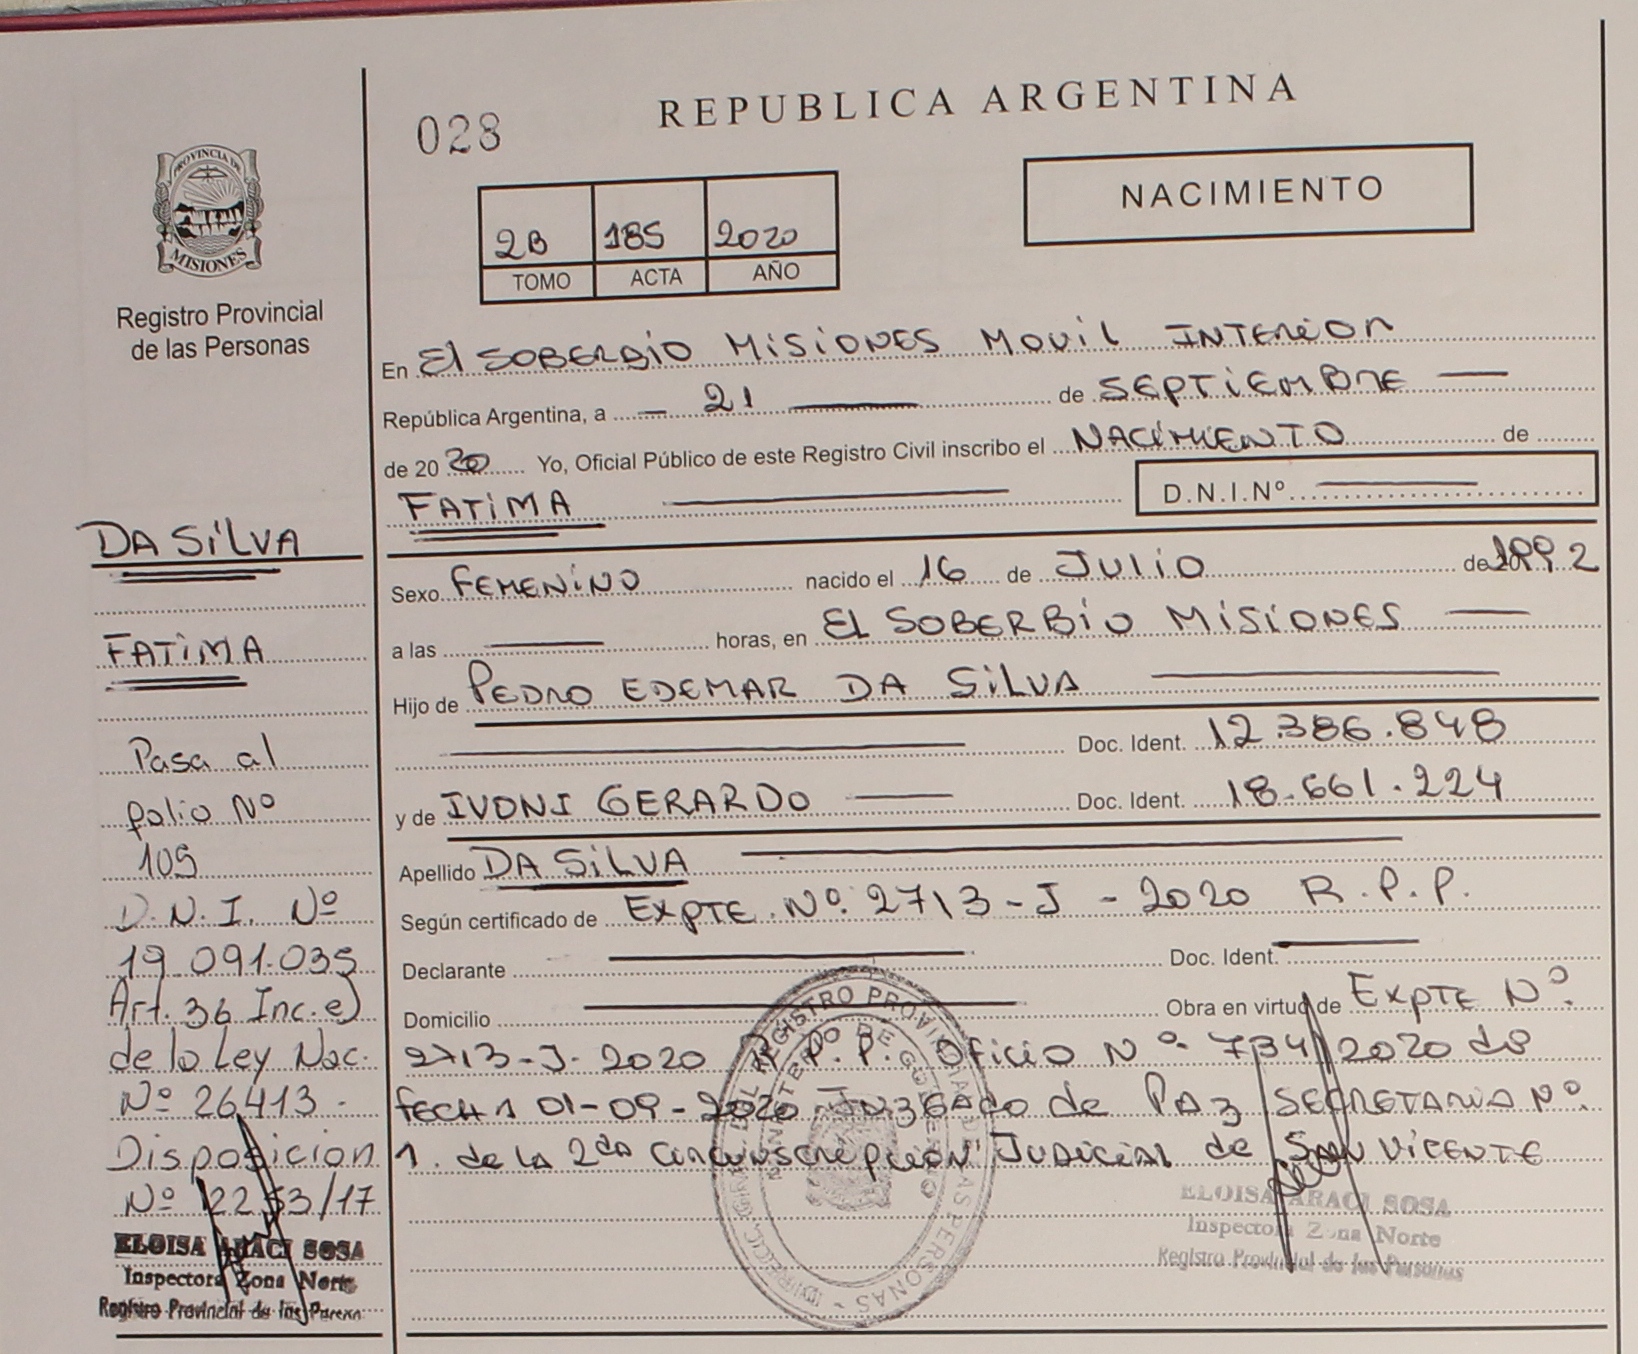 028
REPUBLICA ARGENTINA
NACIMIENTO
2B 185 2020
TOMO ACTA AÑO
PROVINCIA DE
MISIONES
Registro Provincial
de las Personas
En El SOBERBIO MISIONES MOVIL INTERIOR
República Argentina, a 21 de SEPTIEMBRE
de 20 20 Yo, Oficial Público de este Registro Civil inscribo el NACIMIENTO de
FATIMA D.N.I.Nº
Sexo FEMENINO nacido el 16 de JULIO de 1992
a las horas, en El SOBERBIO MISIONES
Hijo de PEDRO EDEMAR DA SILVA
Doc. Ident. 12.386.848
y de IVONI GERARDO Doc. Ident. 18.661.224
Apellido DA SILVA
Según certificado de EXPTE. Nº. 2713-J-2020 R.P.P.
Declarante Doc. Ident.
Domicilio Obra en virtud de EXPTE Nº.
2713-J-2020 R.P.P. Oficio Nº. 734/2020 de
FECHA 01-09-2020 JUZGADO de PAZ SECRETARIA Nº.
1. de la 2da CIRCUNSCRIPCION JUDICIAL de SAN VICENTE
ELOISA ARACI SOSA
Inspectora Zona Norte
Registro Provincial de las Personas
DA SILVA
FATIMA
Pasa al
folio Nº
105
D.N.I. Nº
19.091.035
Art. 36 Inc. e)
de la Ley Nac.
Nº 26413.
Disposicion
Nº 2253/17
ELOISA ARACI SOSA
Inspectora Zona Norte
Registro Provincial de las Person